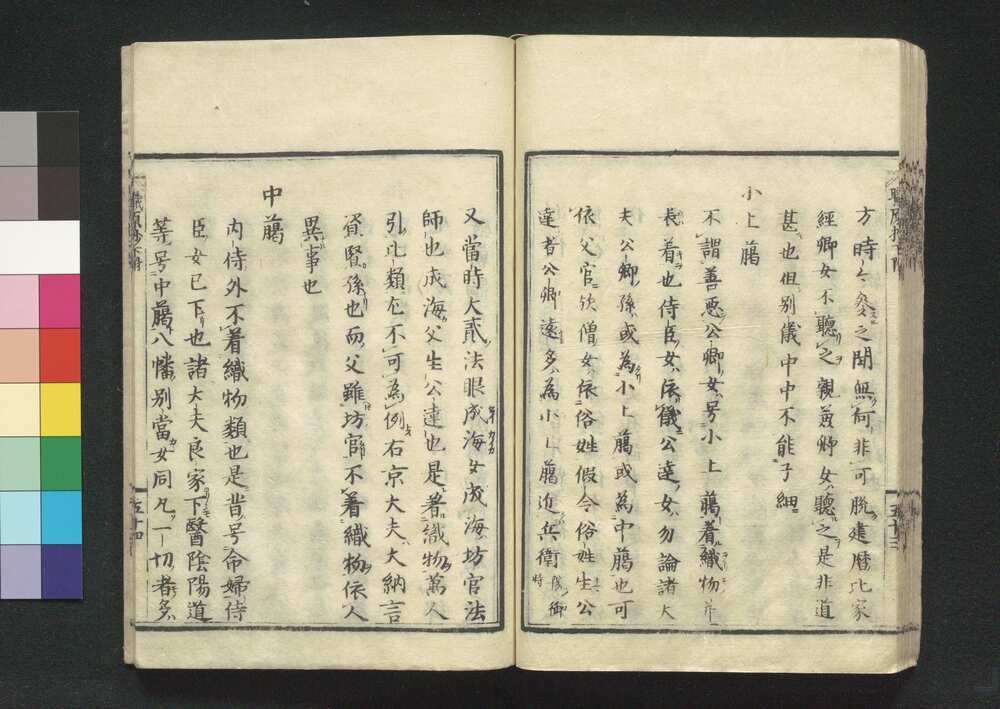 方時々參之間無何非可脱建暦比家
經卿女不聽之親兼卿女聽之是非道
甚也但別儀中中不能子細
小上﨟
不謂善悪公卿女号小上﨟着織物
長着也侍臣女依儀公達女勿論諸大
夫公卿孫或為小上﨟或為中﨟也可
依父官欤僧女依俗姓假令俗姓生公
達者公卿遠多為小上﨟近兵衛
時
五十三
又當時大貳法眼成海女成海坊官法
師也成海父生公達也是著織物萬人
引比類左不可為例右京大夫大納言
資賢孫也而父雖坊官不着織物依人
異事也
中﨟
内侍外不着織物類也是昔号命婦侍
臣女已下也諸大夫良家下醫陰陽道
等号中﨟八幡別當女同凡一切者多
五十四